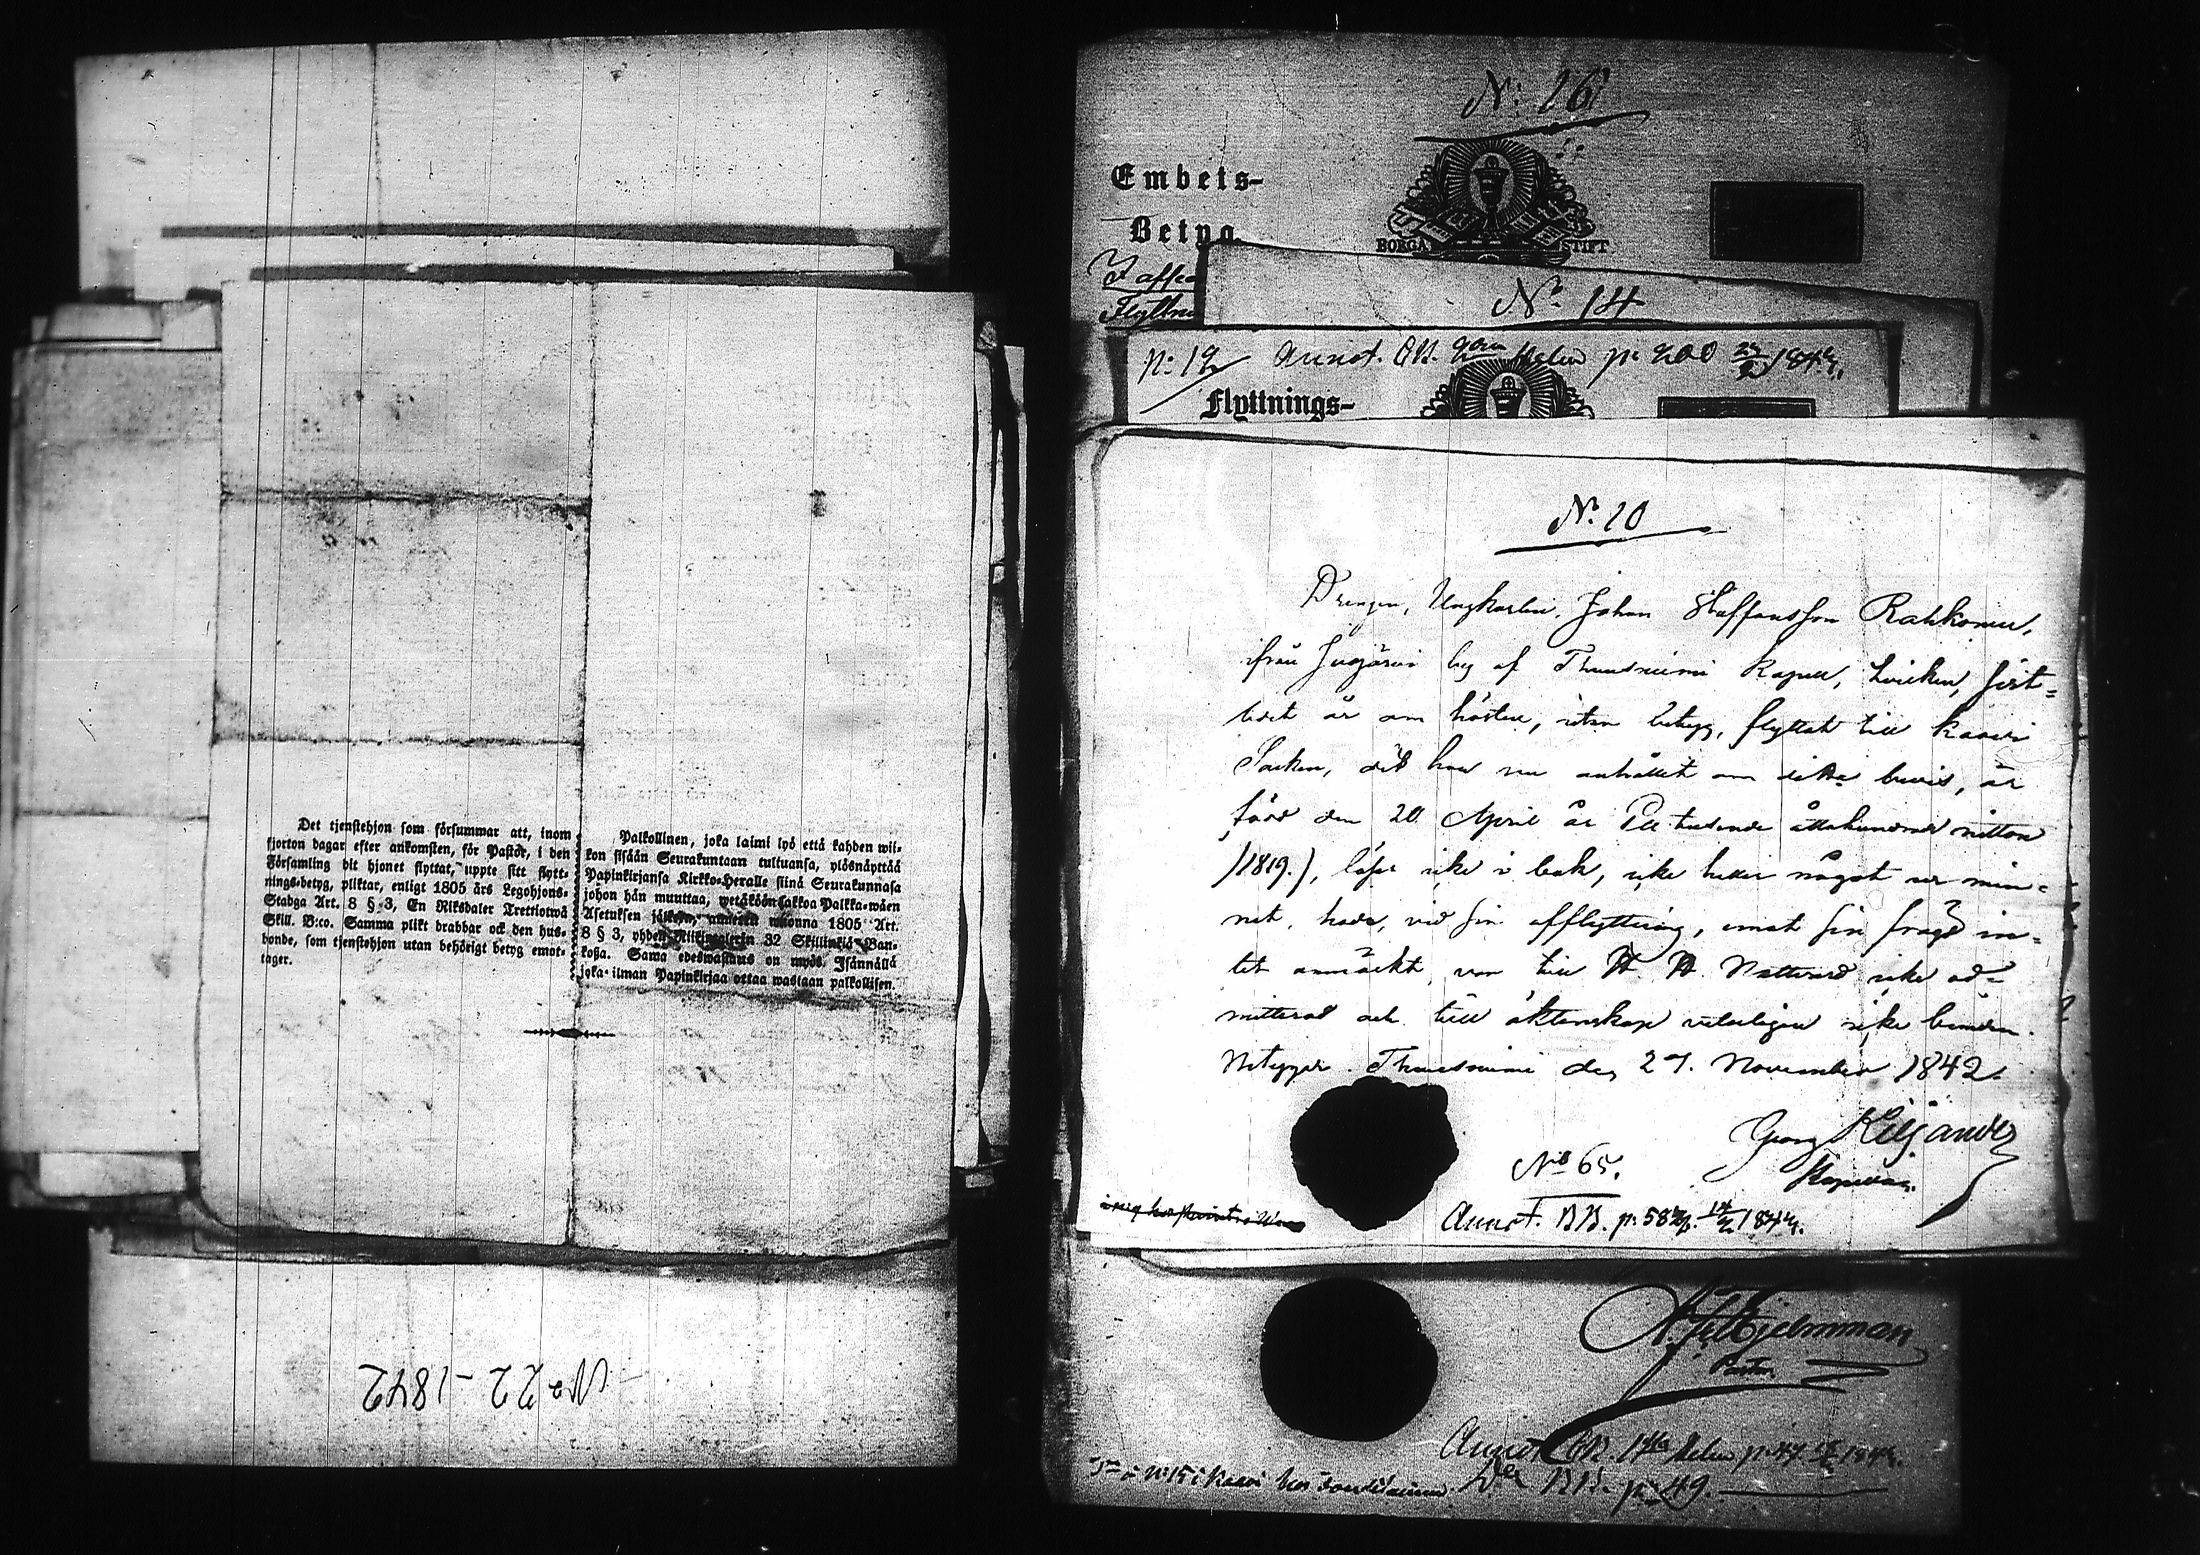 Det tjenstehjon som försummar att, inom
fjorton dagar efter ankomsten, för Pastor, i den
Församling dit hjonet flyttat, uppte sitt flytt-
nings-betyg, pliktar, enligt 1805 års Legohjons-
Stadga Art. 8 § 3, En Riksdaler Trettiotwå
Skill. B:co. Samma plikt drabbar ock den hus-
bonde, som tjenstehjon utan behörigt betyg emot-
tager.
Palkollinen, joka laimi lyö että kahden wii-
kon sisään Seurakuntaan tultuansa, ylösnäyttää
Papinkirjansa Kirkko-Heralle siinä Seurakunnasa
johon hän muuttaa, wetäköön sakkoa Palkka-wäen
Asetuksen jälkeen, wuonna 1805 Art.
8 § 3, yhden Riikintalerin 32 Skillinkiä Ban-
koßa. Sama edeswastaus on myös Isännällä
joka ilman Papinkirjaa ottaa wastaan palkollisen.
No 22 - 1842
N: 16
Embets-
Betyg
BORGÅ STIFT
Flyttn
No 14
N: 19 Annot. p: 200 1843.
Flyttnings-
No. 20
Drengen, Ungkarlen, Johan Staffansson Rahkonen,
ifrån Juojärvi by af Thuusniemi Kapell, hvilken, förl=
lidet år om hösten, utan betyg, flyttat till Kaavi
Socken, dit han nu anhållit om sitt bevis, är
född den 20 April år Ett tusende åttahundrade nitton
/1819./, läser icke i bok, icke heller något ur min=
net, hade, vid sin afflyttning, emot sin frägd in=
tet anmärkt, var till H. H. Nattvard icke ad=
mitterad och till äktenskap veterligen icke bunden.
Betygar. Thuusniemi den 27. November 1842.
Georg Kiljander
Kapellan.
No 65.
Annot. BB. p: 582
Hjelmman
Pastor.
Annot p: 47
BB. p: 49.